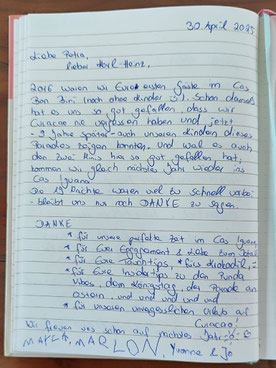 30. April 2025
Liebe Petra,
lieber Karl-Heinz,
2016 waren wir Eure ersten Gäste im Cas
Bon Bini (noch ohne Kinder :)). Schon damals
hat es uns so gut gefallen, dass wir
Curacao nie vergessen haben und jetzt
- 9 Jahre später - auch unseren Kindern dieses
Paradies zeigen konnten. Und weil es auch
den zwei Minis hier so gut gefallen hat,
kommen wir gleich nächstes Jahr wieder ins
Cas Iguana.
Die 13 Nächte waren viel zu schnell vorbei -
bleibt uns nur noch DANKE zu sagen.
DANKE
* für unsere perfekte Zeit im Cas Iguana,
* für Euer Engagement & Liebe zum Detail
* für Eure Tauchtipps, * für
* für Eure Insidertips zu den
Vibes, dem Königstag, der Parade an
Ostern, und und und und und
* für unseren unvergesslichen Urlaub auf
Curacao
Wir freuen uns schon auf nächstes Jahr
MARLON, Yvonne & Jo